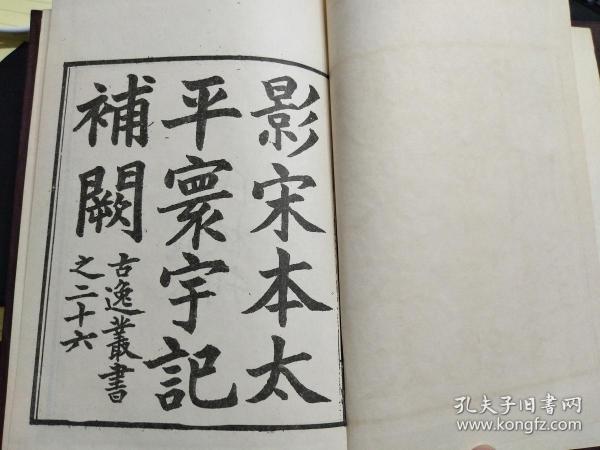 影宋本太
平寰宇記
補闕
古逸叢書
之二十六
孔夫子旧书网
www.kongfz.com